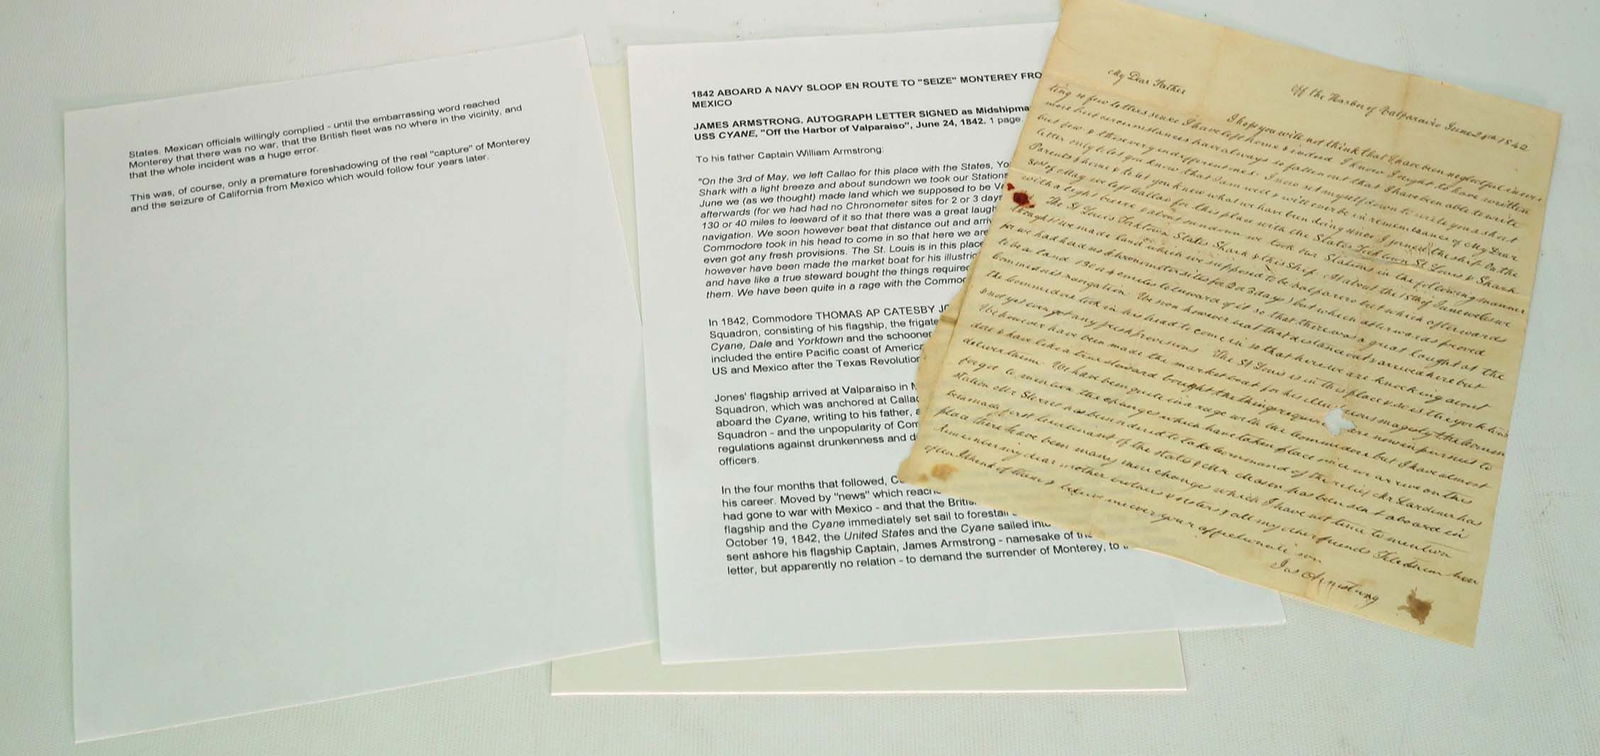 States. Mexican officials willingly complied - until the embarrassing word reached
Monterey that there was no war, that the British fleet was no where in the vicinity, and
that the whole incident was a huge error.
This was, of course, only a premature foreshadowing of the real "capture" of Monterey
and the seizure of California from Mexico which would follow four years later.
1842 ABOARD A NAVY SLOOP EN ROUTE TO "SEIZE" MONTEREY FRO
MEXICO
JAMES ARMSTRONG. AUTOGRAPH LETTER SIGNED as Midshipma
USS CYANE, "Off the Harbor of Valparaiso", June 24, 1842. 1 page
To his father Captain William Armstrong:
"On the 3rd of May, we left Callao for this place with the States, Yo
Shark with a light breeze and about sundown we took our Station
June we (as we thought) made land which we supposed to be V
afterwards (for we had had no Chronometer sites for 2 or 3 day
130 or 40 miles to leeward of it so that there was a great laugh
navigation. We soon however beat that distance out and arri
Commodore took in his head to come in so that here we are
even got any fresh provisions. The St. Louis is in this place
however have been made the market boat for his illustri
and have like a true steward bought the things required
them. We have been quite in a rage with the Commo
In 1842, Commodore THOMAS AP CATESBY JO
Squadron, consisting of his flagship, the frigate
Cyane, Dale and Yorktown and the schooner
included the entire Pacific coast of Americ
US and Mexico after the Texas Revolution
Jones' flagship arrived at Valparaiso in M
Squadron, which was anchored at Calla
aboard the Cyane, writing to his father, a
Squadron - and the unpopularity of Com
regulations against drunkenness and d
officers.
In the four months that followed, C
his career. Moved by "news" which reach
had gone to war with Mexico - and that the Briti
flagship and the Cyane immediately set sail to forestall
October 19, 1842, the United States and the Cyane sailed into
sent ashore his flagship Captain, James Armstrong - namesake of the
letter, but apparently no relation - to demand the surrender of Monterey, to
Off the Harbor of Valparaiso June 24th 1842
My Dear Father
I hope you will not think that I have been neglectful in wri
ting so few letters since I have left home & indeed I know I ought to have written
more but circumstances have always so fallen out that I have been able to write
but few & those very indifferent ones. I now set myself down to write you a short
letter only to let you know that I am well & will ever be in remembrance of My Dear
Parents & home & to let you know what we have been doing since I joined the ship. On the
3rd of May we left Callao for this place with the States St Louis & Shark
with a light breeze & about sundown we took our Stations in the following manner
The St Louis Yorktown States Shark & this Ship. At about the 15th of June we (as we
thought) we made land which we supposed to be Valparaiso but which afterwards
for we had had no chronometer sites for 2 or 3 days) but which afterwards proved
to be land 130 or 40 miles to leeward of it so that there was a great laugh at the
Commodore's navigation. We soon however beat that distance out & arrived here but
the Commodore took in his head to come in so that here we are knocking about
& not yet even got any fresh provisions. The St Louis is in this place
We however have been made the market boat for his illustrious majesty
dore & have like a true steward bought the things required & are now in pursuit to
deliver them. We have been quite in a rage with the Commodore but I have almost
forgot to mention the changes which have taken place since our arrival on this
station
became first lieutenant of the States & Mr has been sent aboard in
place there have been many more changes which I have not time to mention
Remember my dear mother & sisters & all my other friends
often I think of them & believe me ever your affectionate son
Jas Armstrong